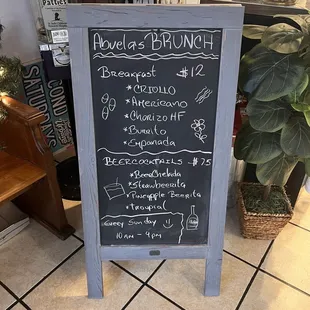 Abuelas BRUNCH
Breakfast $12
* CRiollo
* AmericAno
* ChoRizo HF
* BuRRito
* EmpAnAda
BEERCOCKTAILS $75
* BeerChelada
* StRawbeeRRita
* PineApple BeeRRita
* TRopical
Every Sunday
10 Am - 4 pm
SATURDAYS